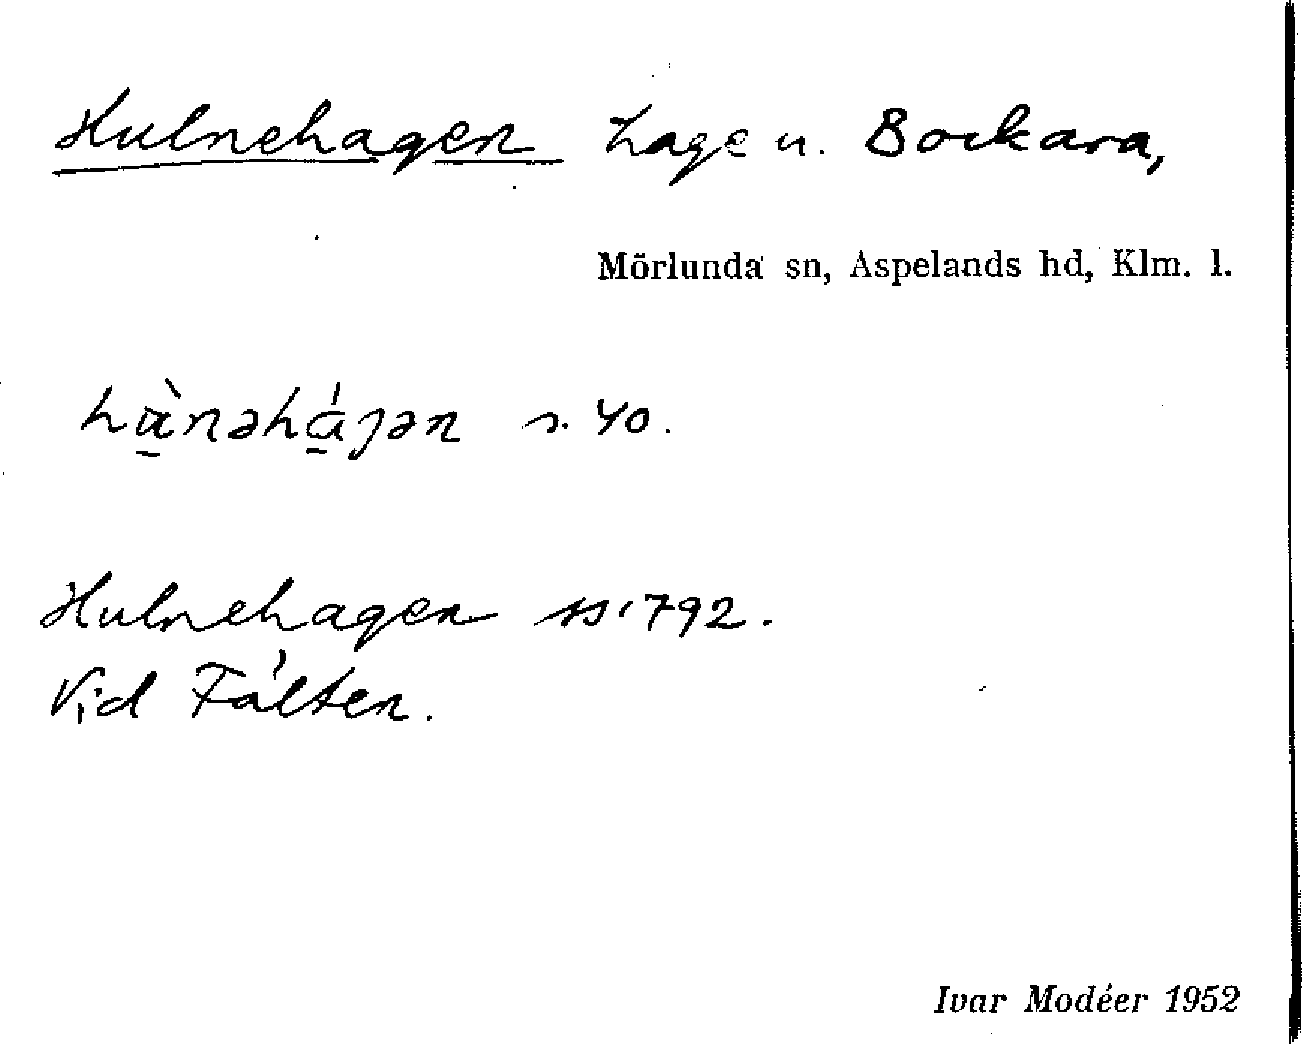 Hulnehagen hage u. Bockara,
Mörlunda sn, Aspelands hd, Klm. l.
hὰ̠nəhά̠ɡən s. 40.
Hulnehagen ss. 792.
Vid Fálten.
Ivar Modéer 1952